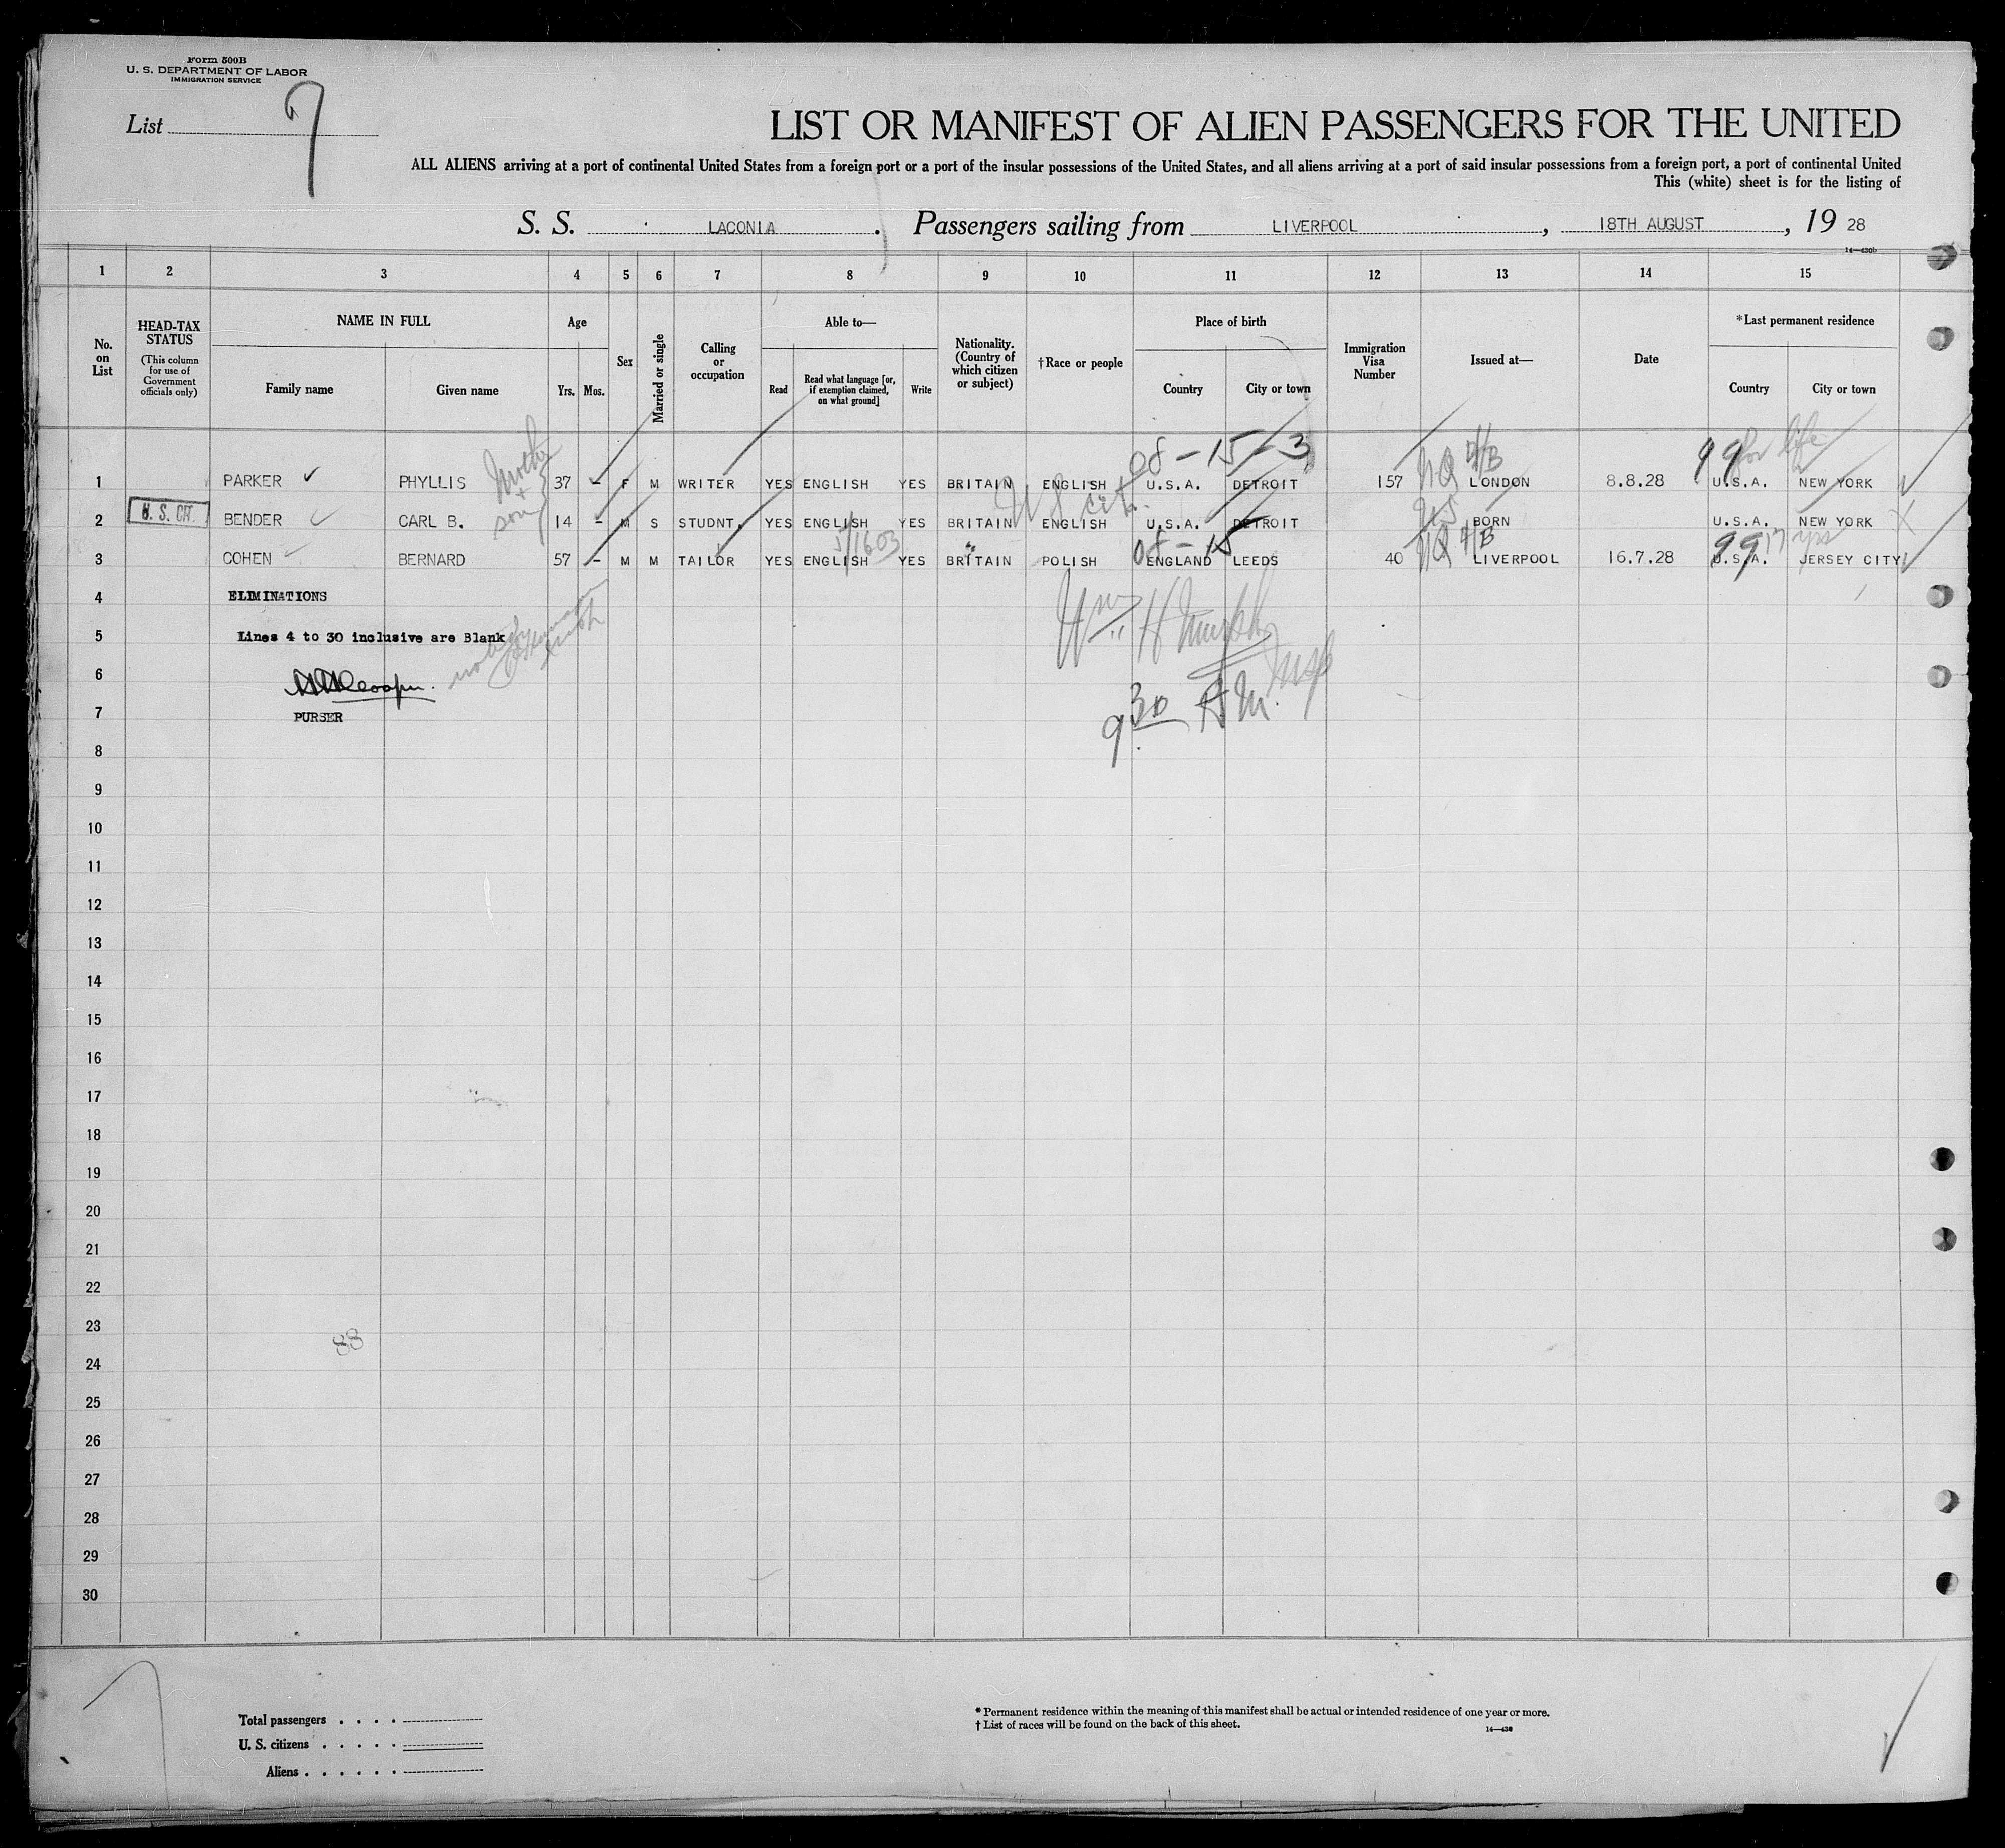 Form 500B
U. S. DEPARTMENT OF LABOR
IMMIGRATION SERVICE
List 7
LIST OR MANIFEST OF ALIEN PASSENGERS FOR THE UNITED
ALL ALIENS arriving at a port of continental United States from a foreign port or a port of the insular possessions of the United States, and all aliens arriving at a port of said insular possessions from a foreign port, a port of continental United
This (white) sheet is for the listing of
S. S. LACONIA . Passengers sailing from LIVERPOOL , 18TH AUGUST , 19 28
14—430b
1 2 3 4 5 6 7 8 9 10 11 12 13 14 15
No. on List
HEAD-TAX STATUS
(This column for use of Government officials only)
NAME IN FULL
Family name Given name
Age
Yrs. Mos.
Sex
Married or single
Calling or occupation
Able to—
Read Read what language [or, if exemption claimed, on what ground] Write
Nationality. (Country of which citizen or subject)
†Race or people
Place of birth
Country City or town
Immigration Visa Number
Issued at—
Date
*Last permanent residence
Country City or town
Mother + son
08-15-3
NQ 4/B
99 for life
1 PARKER ✓ PHYLLIS 37 - F M WRITER YES ENGLISH YES BRITAIN ENGLISH U.S.A. DETROIT 157 LONDON 8.8.28 U.S.A. NEW YORK
U.S. cit.
US
2 U. S. CIT. BENDER ✓ CARL B. 14 - M S STUDNT. YES ENGLISH YES BRITAIN ENGLISH U.S.A. DETROIT BORN U.S.A. NEW YORK X
08-15
NQ 4/B
99 17 yrs
3 COHEN ✓ BERNARD 57 - M M TAILOR YES ENGLISH YES BRITAIN POLISH ENGLAND LEEDS 40 LIVERPOOL 16.7.28 U.S.A. JERSEY CITY
4 ELIMINATIONS
5 Lines 4 to 30 inclusive are Blank
6
7 PURSER
Wm H Murphy
Insp
9 30 AM.
8
9
10
11
12
13
14
15
16
17
18
19
20
21
22
23
88
24
25
26
27
28
29
30
Total passengers . . . .
U. S. citizens . . . . .
Aliens . . . . . .
* Permanent residence within the meaning of this manifest shall be actual or intended residence of one year or more.
† List of races will be found on the back of this sheet.
14—430